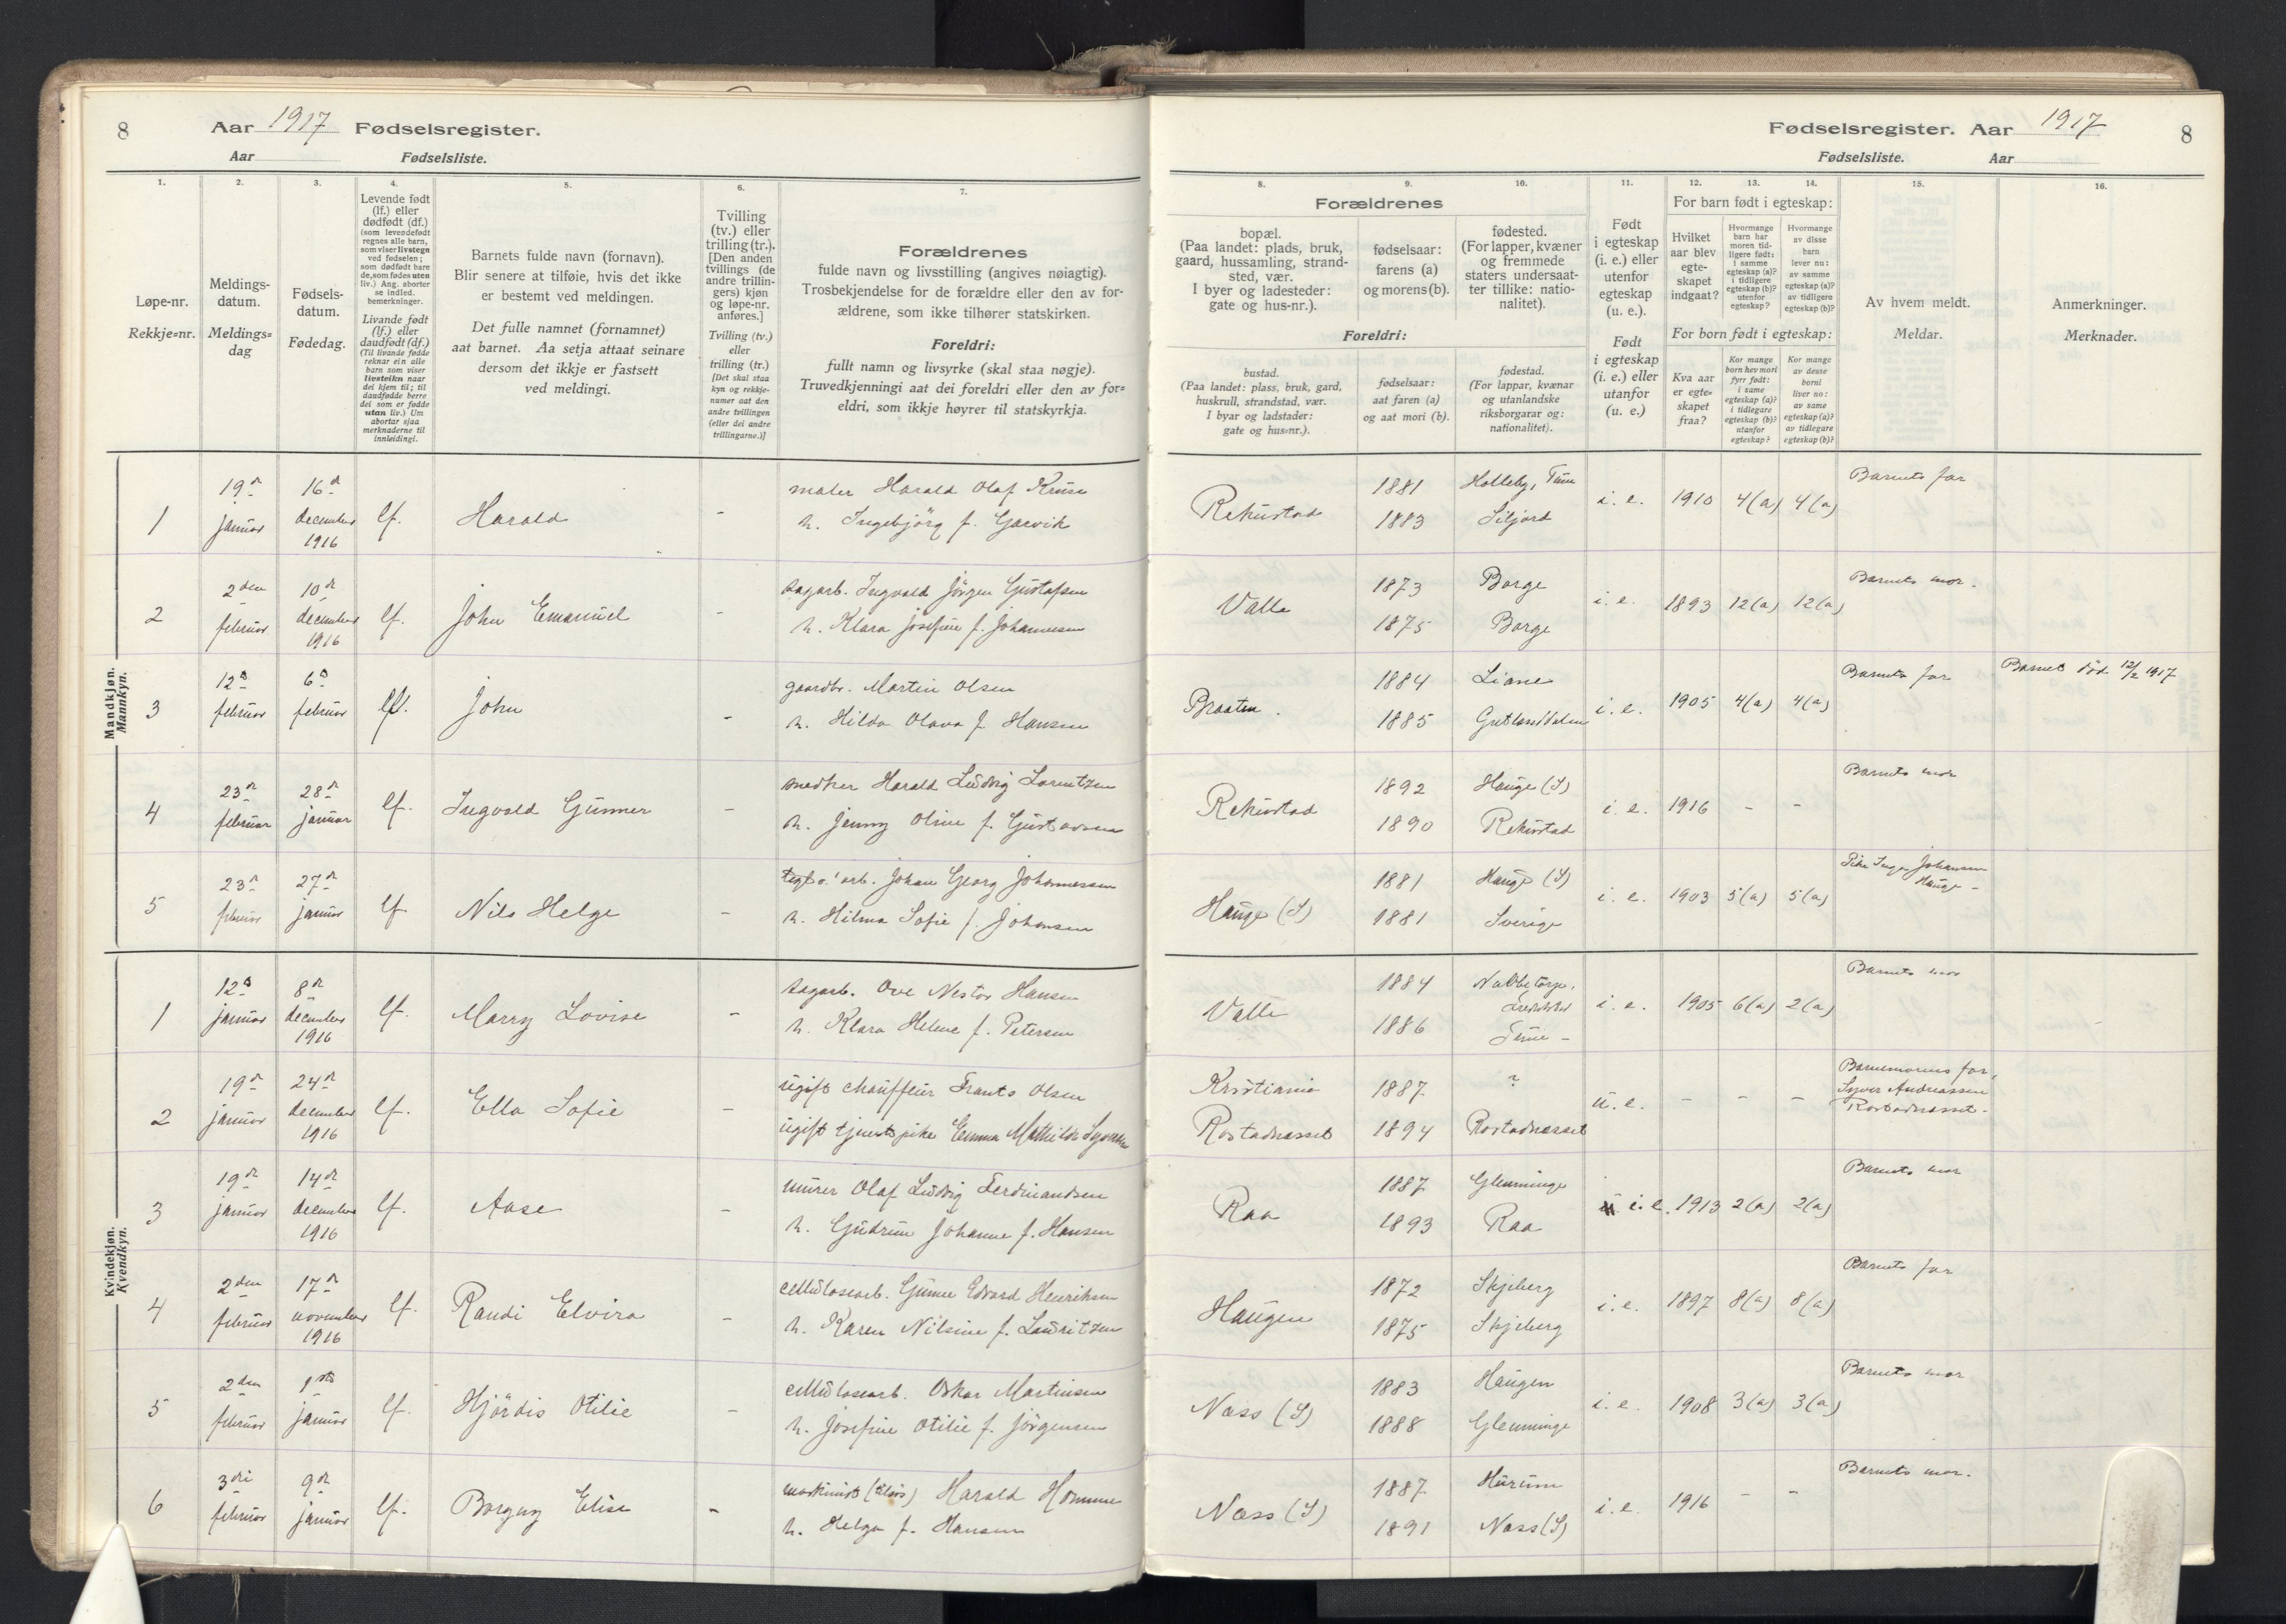 8 Aar 1917 Fødselsregister.
Aar Fødselsliste.
Fødselsregister. Aar 1917 8
Fødselsliste. Aar
1.
Løpe-nr.
Rekkje=nr.
2.
Meldings-
datum.
Meldings=
dag
3.
Fødsels-
datum.
Fødedag.
4.
Levende født
(lf.) eller
dødfødt (df.)
(som levendefødt
regnes alle barn,
som viser livstegn
ved fødselen;
som dødfødt bare
de, som fødes uten
liv.) Ang. aborter
se indled.
bemerkninger.
Livande født
(lf.) eller
daudfødt (df.)
(Til livande fødde
reknar ein alle
barn som viser
livsteikn naar
dei kjem til; til
daudfødde berre
dei som er fødde
utan liv.) Um
abortar sjaa
merknaderne til
innleidingi.
5.
Barnets fulde navn (fornavn).
Blir senere at tilføie, hvis det ikke
er bestemt ved meldingen.
Det fulle namnet (fornamnet)
aat barnet. Aa setja attaat seinare
dersom det ikkje er fastsett
ved meldingi.
6.
Tvilling
(tv.) eller
trilling (tr.).
[Den anden
tvillings (de
andre trillin-
gers) kjøn
og løpe-nr.
anføres.]
Tvilling (tv.)
eller
trilling (tr.)
[Det skal staa
kyn og rekkje-
numer aat den
andre tvillingen
(eller dei andre
trillingarne.)]
7.
Forældrenes
fulde navn og livsstilling (angives nøiagtig).
Trosbekjendelse for de forældre eller den av for-
ældrene, som ikke tilhører statskirken.
Foreldri:
fullt namn og livsyrke (skal staa nøgje).
Truvedkjenningi aat dei foreldri eller den av for=
eldri, som ikkje høyrer til statskyrkja.
Forældrenes
8.
bopæl.
(Paa landet: plads, bruk,
gaard, hussamling, strand-
sted, vær.
I byer og ladesteder:
gate og hus-nr.).
9.
fødselsaar:
farens (a)
og morens (b).
10.
fødested.
(For lapper, kvæner
og fremmede
staters undersaat-
ter tillike: natio-
nalitet).
Foreldri:
bustad.
(Paa landet: plass, bruk, gard,
huskrull, strandstad, vær.
I byar og ladstader:
gate og hus=nr.).
fødselsaar:
aat faren (a)
og aat mori (b).
fødestad.
(For lappar, kvænar
og utanlandske
riksborgarar og:
nationalitet).
11.
Født
i egteskap
(i. e.) eller
utenfor
egteskap
(u. e.).
Født
i egteskap
(i. e.) eller
utanfor
(u. e.)
12. 13. 14.
For barn født i egteskap:
Hvilket
aar blev
egte-
skapet
indgaat?
Hvormange
barn har
moren tid-
ligere født:
i samme
egteskap (a)?
i tidligere
egteskap (b)?
utenfor
egteskap?
Hvormange
av disse
barn
lever nu:
av samme
egteskap (a)?
av tidligere
egteskap (b)?
For born født i egteskap:
Kva aar
er egte-
skapet
fraa?
Kor mange
born hev mori
fyrr født:
i same
egteskap (a)?
i tidlegare
egteskap (b)?
utanfor
egteskap?
Kor mange
av desse
borni
liver no:
av same
egteskap (a)?
av tidlegare
egteskap (b)?
15.
Av hvem meldt.
Meldar.
16.
Anmerkninger.
Merknader.
Mandkjøn.
Mannkyn.
1 19de januar 16de december 1916 lf. Harald - maler Harald Olaf Kruse
h. Ingebjörg f. Garvik
Rekustad 1881 Holleby, Tune i. e. 1910 4(a) 4(a) Barnets far
1883 Siljord
2 2den februar 10de december 1916 lf. John Emanuel - sagarb. Ingvald Jörgen Gustafsen
h. Klara Josefine f. Johannesen
Valle 1873 Borge i. e. 1893 12(a) 12(a) Barnets mor.
1875 Borge
3 12te februar 6te februar lf. John - gaardbr. Martin Olsen
h. Hilda Olava f. Hansen
Braaten. 1884 Liane i. e. 1905 4(a) 4(a) Barnets far Barnet död 12/2 1917
1885 Gretlanddalen
4 23de februar 28de januar lf. Ingvald Gunner - snedker Harald Ludvig Lorentzen
h. Jenny Oline f. Gustavsen
Rekustad 1892 Hauge (S) i. e. 1916 - - Barnets mor
1890 Rekustad
5 23de februar 27de januar lf Nils Helge - arb. Johan Georg Johannessen
h. Hilma Sofie f. Johansen
Hauge (S) 1881 Hauge (S) i. e. 1903 5(a) 5(a) Pike Inga Johansen
Hauge -
1881 Sverige
Kvindekjøn.
Kvendkyn.
1 12te januar 8de december 1916 lf. Marry Lovise - sagarb. Ove Nestor Hansen
h. Klara Helene f. Petersen
Valle 1884 Nabbetorp, i. e. 1905 6(a) 2(a) Barnets mor
1886 Tune -
2 19de januar 24de december 1916 lf. Ella Sofie - ugift chauffeur Frants Olsen
ugift tjenestpike Emma Mathilde
Kristiania 1887 ? u. e. - - - Barnemorens far,
Syver Andreassen
Rostadnesset -
Rostadnesset 1894 Rostadnesset
3 19de januar 14de december 1916 lf. Aase - murer Olaf Ludvig Ferdinandsen
h. Gudrun Johanne f. Hansen
Raa 1887 Glemminge i. e. 1913 2(a) 2(a) Barnets mor
1893 Raa
4 2den februar 17de november 1916 lf. Randi Elvira - cellulosearb. Gunne Edvard Henriksen
h. Karen Nilsine f. Lauritzen
Haugen 1872 Skjeberg i. e. 1897 8(a) 8(a) Barnets far
1875 Skjeberg
5 2den februar 1ste januar lf. Hjördis Otilie - cellulosearb. Oskar Martinsen
h. Josefine Otilie f. Jörgensen
Næss (S) 1883 Haugen i. e. 1908 3(a) 3(a) Barnets mor
1888 Glemminge
6 3die februar 9de januar lf. Borgny Elise - maskinist (tilsjös) Harald Homme
h. Helga f. Hansen
Næss (S) 1887 Hurum i. e. 1916 - - Barnets mor.
1891 Næss (S)